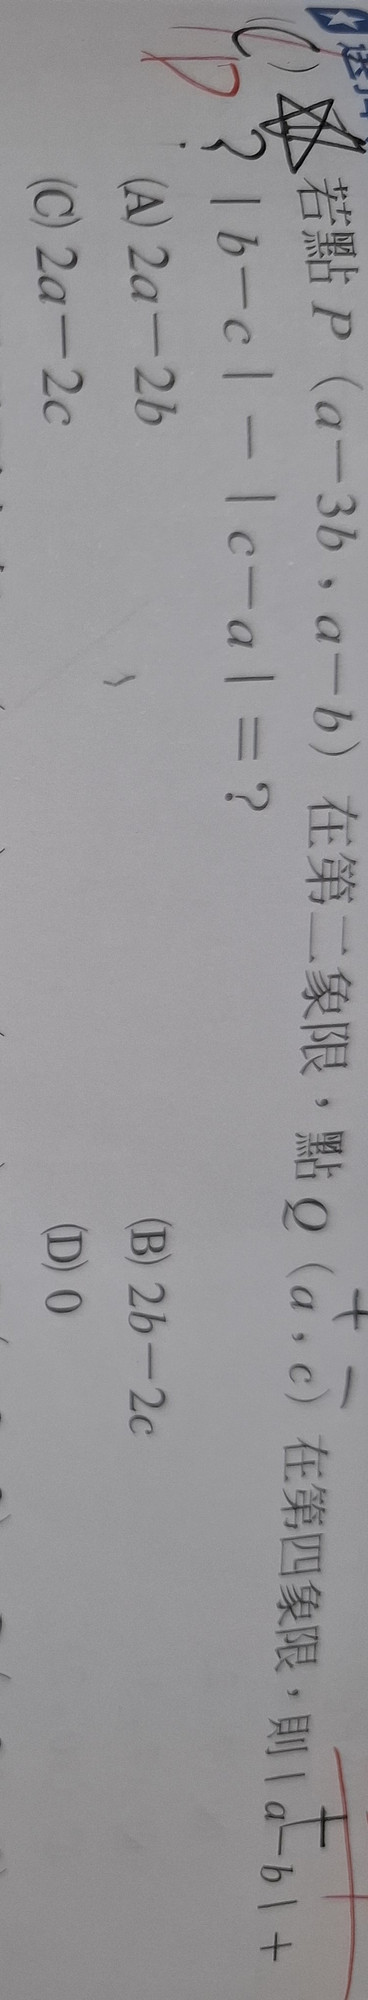 (C) 若點 P（a－3b，a－b）在第二象限，點 Q（a，c）在第四象限，則｜a－b｜＋
D ? ｜b－c｜－｜c－a｜＝?
(A) 2a－2b (B) 2b－2c
(C) 2a－2c (D) 0
＋ －
＋